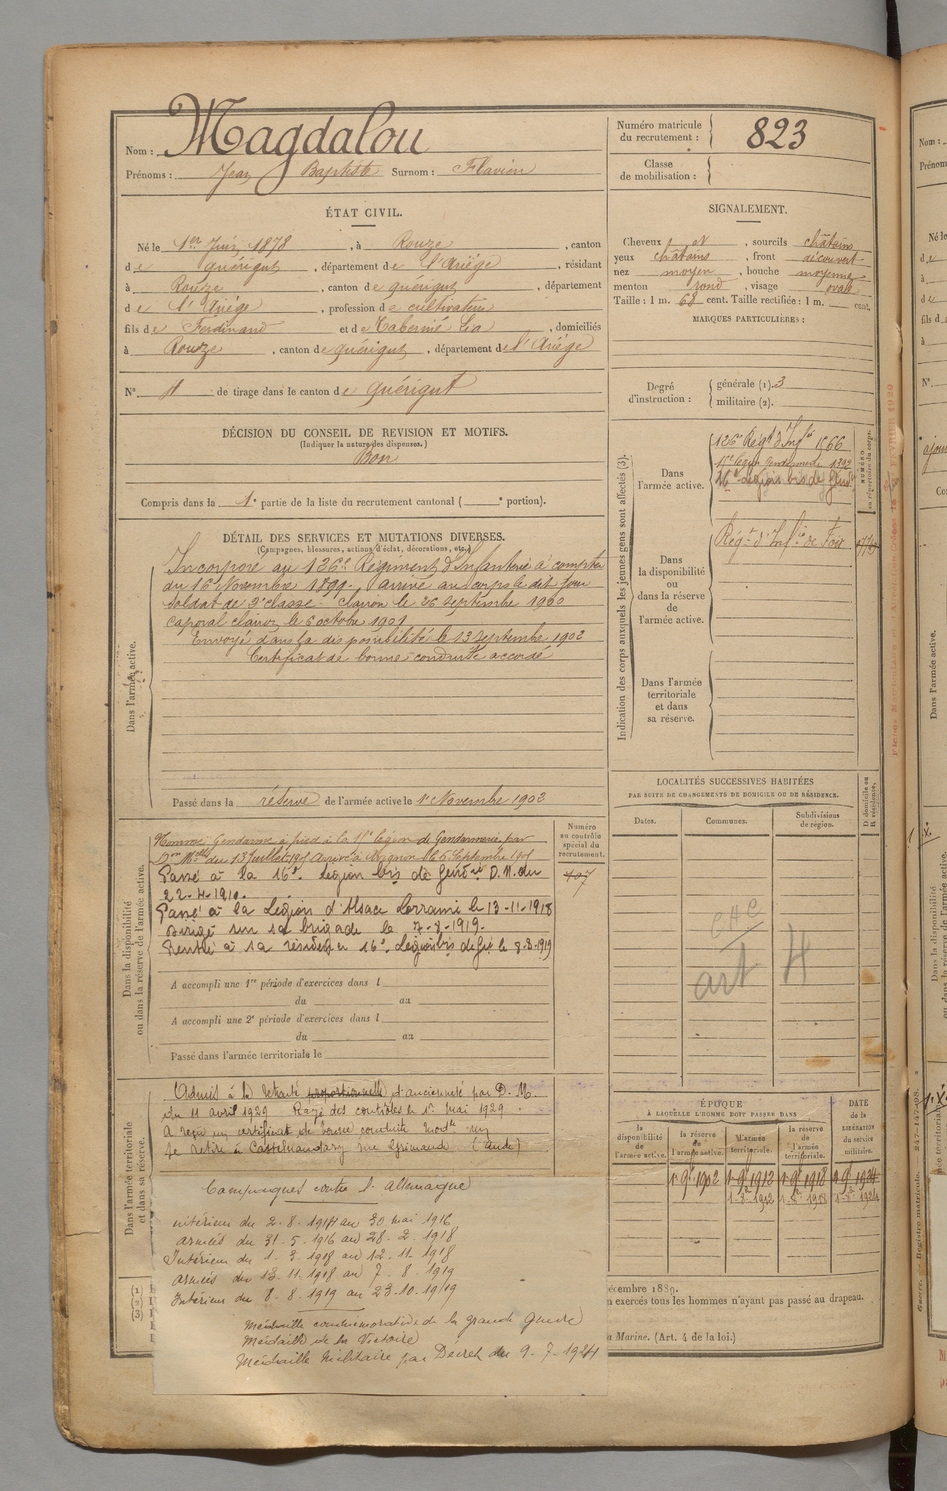 Nom : Magdalou
Prénoms : Jean Baptiste Surnom : Flavien
ÉTAT CIVIL.
Né le 1er Juin 1878, à Rouze, canton
de Quérigut, département de l'Ariège, résidant
à Rouze, canton de Quérigut, département
de l'Ariège, profession de cultivateur
fils de Ferdinand et de Tabermé Lia, domiciliés
à Rouze, canton de Quérigut, département de l'Ariège
N° de tirage dans le canton de Quérigut
DÉCISION DU CONSEIL DE REVISION ET MOTIFS.
(Indiquer la nature des dispenses.)
Bon
Compris dans la 1e partie de la liste du recrutement cantonal ( e portion).
DÉTAIL DES SERVICES ET MUTATIONS DIVERSES.
(Campagnes, blessures, actions d'éclat, décorations, etc.)
Dans l'armée active.
Incorporé au 126e Régiment d'Infanterie à compter
du 16 Novembre 1899. Arrivé au corps le dit jour
soldat de 2e classe. Clairon le 26 septembre 1900
caporal clairon le 6 octobre 1901
Envoyé dans la disponibilité le 13 septembre 1902
Certificat de bonne conduite accordé
Passé dans la réserve de l'armée active le 1er Novembre 1902
Dans la disponibilité
ou dans la réserve de l'armée active.
Numéro
au contrôle
spécial du
recrutement.
Nommé Gendarme à pied à la légion de Gendarmerie par
du 13 Juillet Arrivé à Avignon le 6 Septembre
Passé à la 16e Légion bis de Gendrie D.M. du
22-4-1910.
Passé à la Légion d'Alsace Lorraine le 13-11-1918
Dirigé sur sa brigade le 7-8-1919.
Rentré à sa résidence 16e Légion bis de Gie le 8-8-1919
A accompli une 1re période d'exercices dans l
du au
A accompli une 2e période d'exercices dans l
du au
Passé dans l'armée territoriale le
Dans l'armée territoriale
et dans sa réserve.
Admis à la retraite proportionnelle d'ancienneté par D. M.
du 11 avril 1929 Rayé des contrôles le 1er mai 1929.
A reçu un certificat de bonne conduite modle
Se retire à Castelnaudary rue Grimaud (Aude)
Campagnes contre l'Allemagne
intérieur du 2-8-1914 au 30 mai 1916
armées du 31-5-1916 au 28-2-1918
Intérieur du 1-3-1918 au 12-11-1918
armées du 13-11-1918 au 7-8-1919
Intérieur du 8-8-1919 au 23-10-1919
Médaille commémorative de la grande Guerre
Médaille de la Victoire
Médaille Militaire par Décret du 9-7-1924
(1)
(2)
(3)
Numéro matricule
du recrutement : 823
Classe
de mobilisation :
SIGNALEMENT.
Cheveux et, sourcils châtains
yeux châtains, front découvert
nez moyen, bouche moyenne
menton rond, visage ovale
Taille : 1 m. 68 cent. Taille rectifiée : 1 m. cent.
MARQUES PARTICULIÈRES :
Degré
d'instruction :
générale (1). 3
militaire (2).
Indication des corps auxquels les jeunes gens sont affectés (3).
NUMÉRO
au répertoire du corps.
Dans
l'armée active.
126e Régt d'Infie 1866
légion Gendarmerie
16e Légion bis de Gendie
Dans
la disponibilité
ou
dans la réserve
de
l'armée active.
Régt d'Infie de Foix
Dans l'armée
territoriale
et dans
sa réserve.
LOCALITÉS SUCCESSIVES HABITÉES
PAR SUITE DE CHANGEMENTS DE DOMICILE OU DE RÉSIDENCE.
Dates. Communes. Subdivisions
de région.
D domicile ou
R résidence.
art 4
ÉPOQUE
À LAQUELLE L'HOMME DOIT PASSER DANS
la
disponibilité
de
l'armée active.
la réserve
de
l'armée active.
l'armée
territoriale.
la réserve
de
l'armée
territoriale.
DATE
de la
LIBÉRATION
du service
militaire.
1er 9bre 1902 1er 9bre 1912 1er 9bre 1918 1er 9bre 1924
écembre 1889.
n exercés tous les hommes n'ayant pas passé au drapeau.
a Marine. (Art. 4 de la loi.)